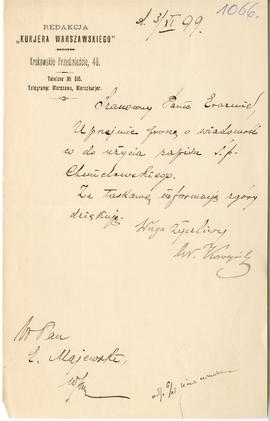 1066.
REDAKCJA
„KURJERA WARSZAWSKIEGO"
Krakowskie Przedmieście, 40.
Telefonu № 515.
Telegramy: Warszawa, Warszkurjer.
d. 3/VI 99.
Szanowny Panie Erazmie!
Uprzejmie proszę o wiadomość
co do użycia zapisu ś.p.
Chmielewskiego.
Za łaskawą informację z góry
dziękuję
Sługa życzliwy
W Pan
E. Majewski